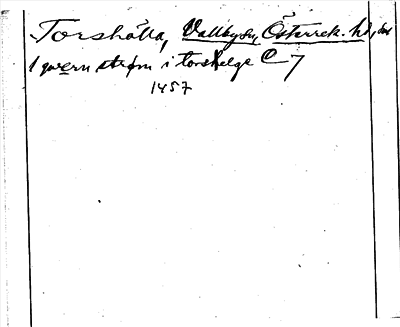 Torshälla, Vallby sn, Österrek. hd,
1 qwern strøm i torshelge C 7
1457